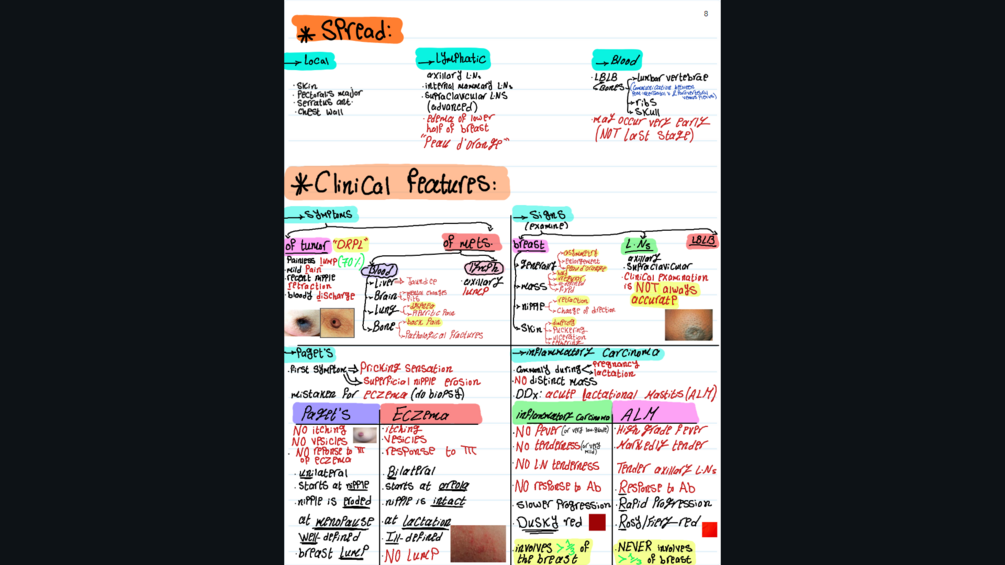 8
* Spread:
→ Local
· Skin
· Pectoralis major
· Serratus ant.
· Chest wall
→ Lymphatic
axillary L.Ns
· internal mammary L.Ns
· Supraclavicular L.NS
(advanced)
· Edema of lower
half of breast
"Peau d'orange"
→ Blood
· LBLB
Bones
→ Lumbar vertebrae
→ ribs
→ Skull
· may occur very early
(NOT Last stage)
* Clinical features:
→ Symptoms
of tumor "DRPL"
Painless lump (70%)
· mild Pain
· recent nipple
retraction
· bloody discharge
of mets.
Blood
→ Liver → Jaundice
→ Brain
→ Lung
→ Bone
→ back Pain
→ Pathological fractures
lymph
axillary
lump
→ Signs
(examine)
breast
→ General
→ asymmetry
→ enlargement
→ Peau d'orange
→ mass
→ nipple
→ retraction
→ Change of direction
→ Skin
→ Puckering
→ ulceration
L.Ns
axillary
Supraclavicular
· Clinical examination
is NOT always
accurate
LBLB
→ Paget's
· First symptom → Pricking sensation
→ Superficial nipple erosion
· mistaken for eczema (do biopsy)
Paget's
· NO itching
NO vesicles
· NO reponse to TTT
of eczema
· unilateral
· Starts at nipple
· nipple is eroded
at menopause
well-defined
· breast lump
Eczema
· itching
· vesicles
· response to TTT
· Bilateral
· starts at areola
· nipple is intact
· at lactation
· Ill-defined
· NO lump
→ inflammatory Carcinoma
· Commonly during → pregnancy
→ lactation
· NO distinct mass
· DDx: acute lactational Mastitis (ALM)
inflammatory carcinoma
· NO fever (or very low grade)
· NO tenderness (or very mild)
· NO LN tenderness
· NO response to Ab
· Slower Progression
· Dusky red
· involves > 2/3 of
the breast
ALM
· High grade fever
· Markedly tender
Tender axillary L.Ns
· Response to Ab
· Rapid Progression
· Rosy/Fiery-red
· NEVER involves
> 2/3 of breast